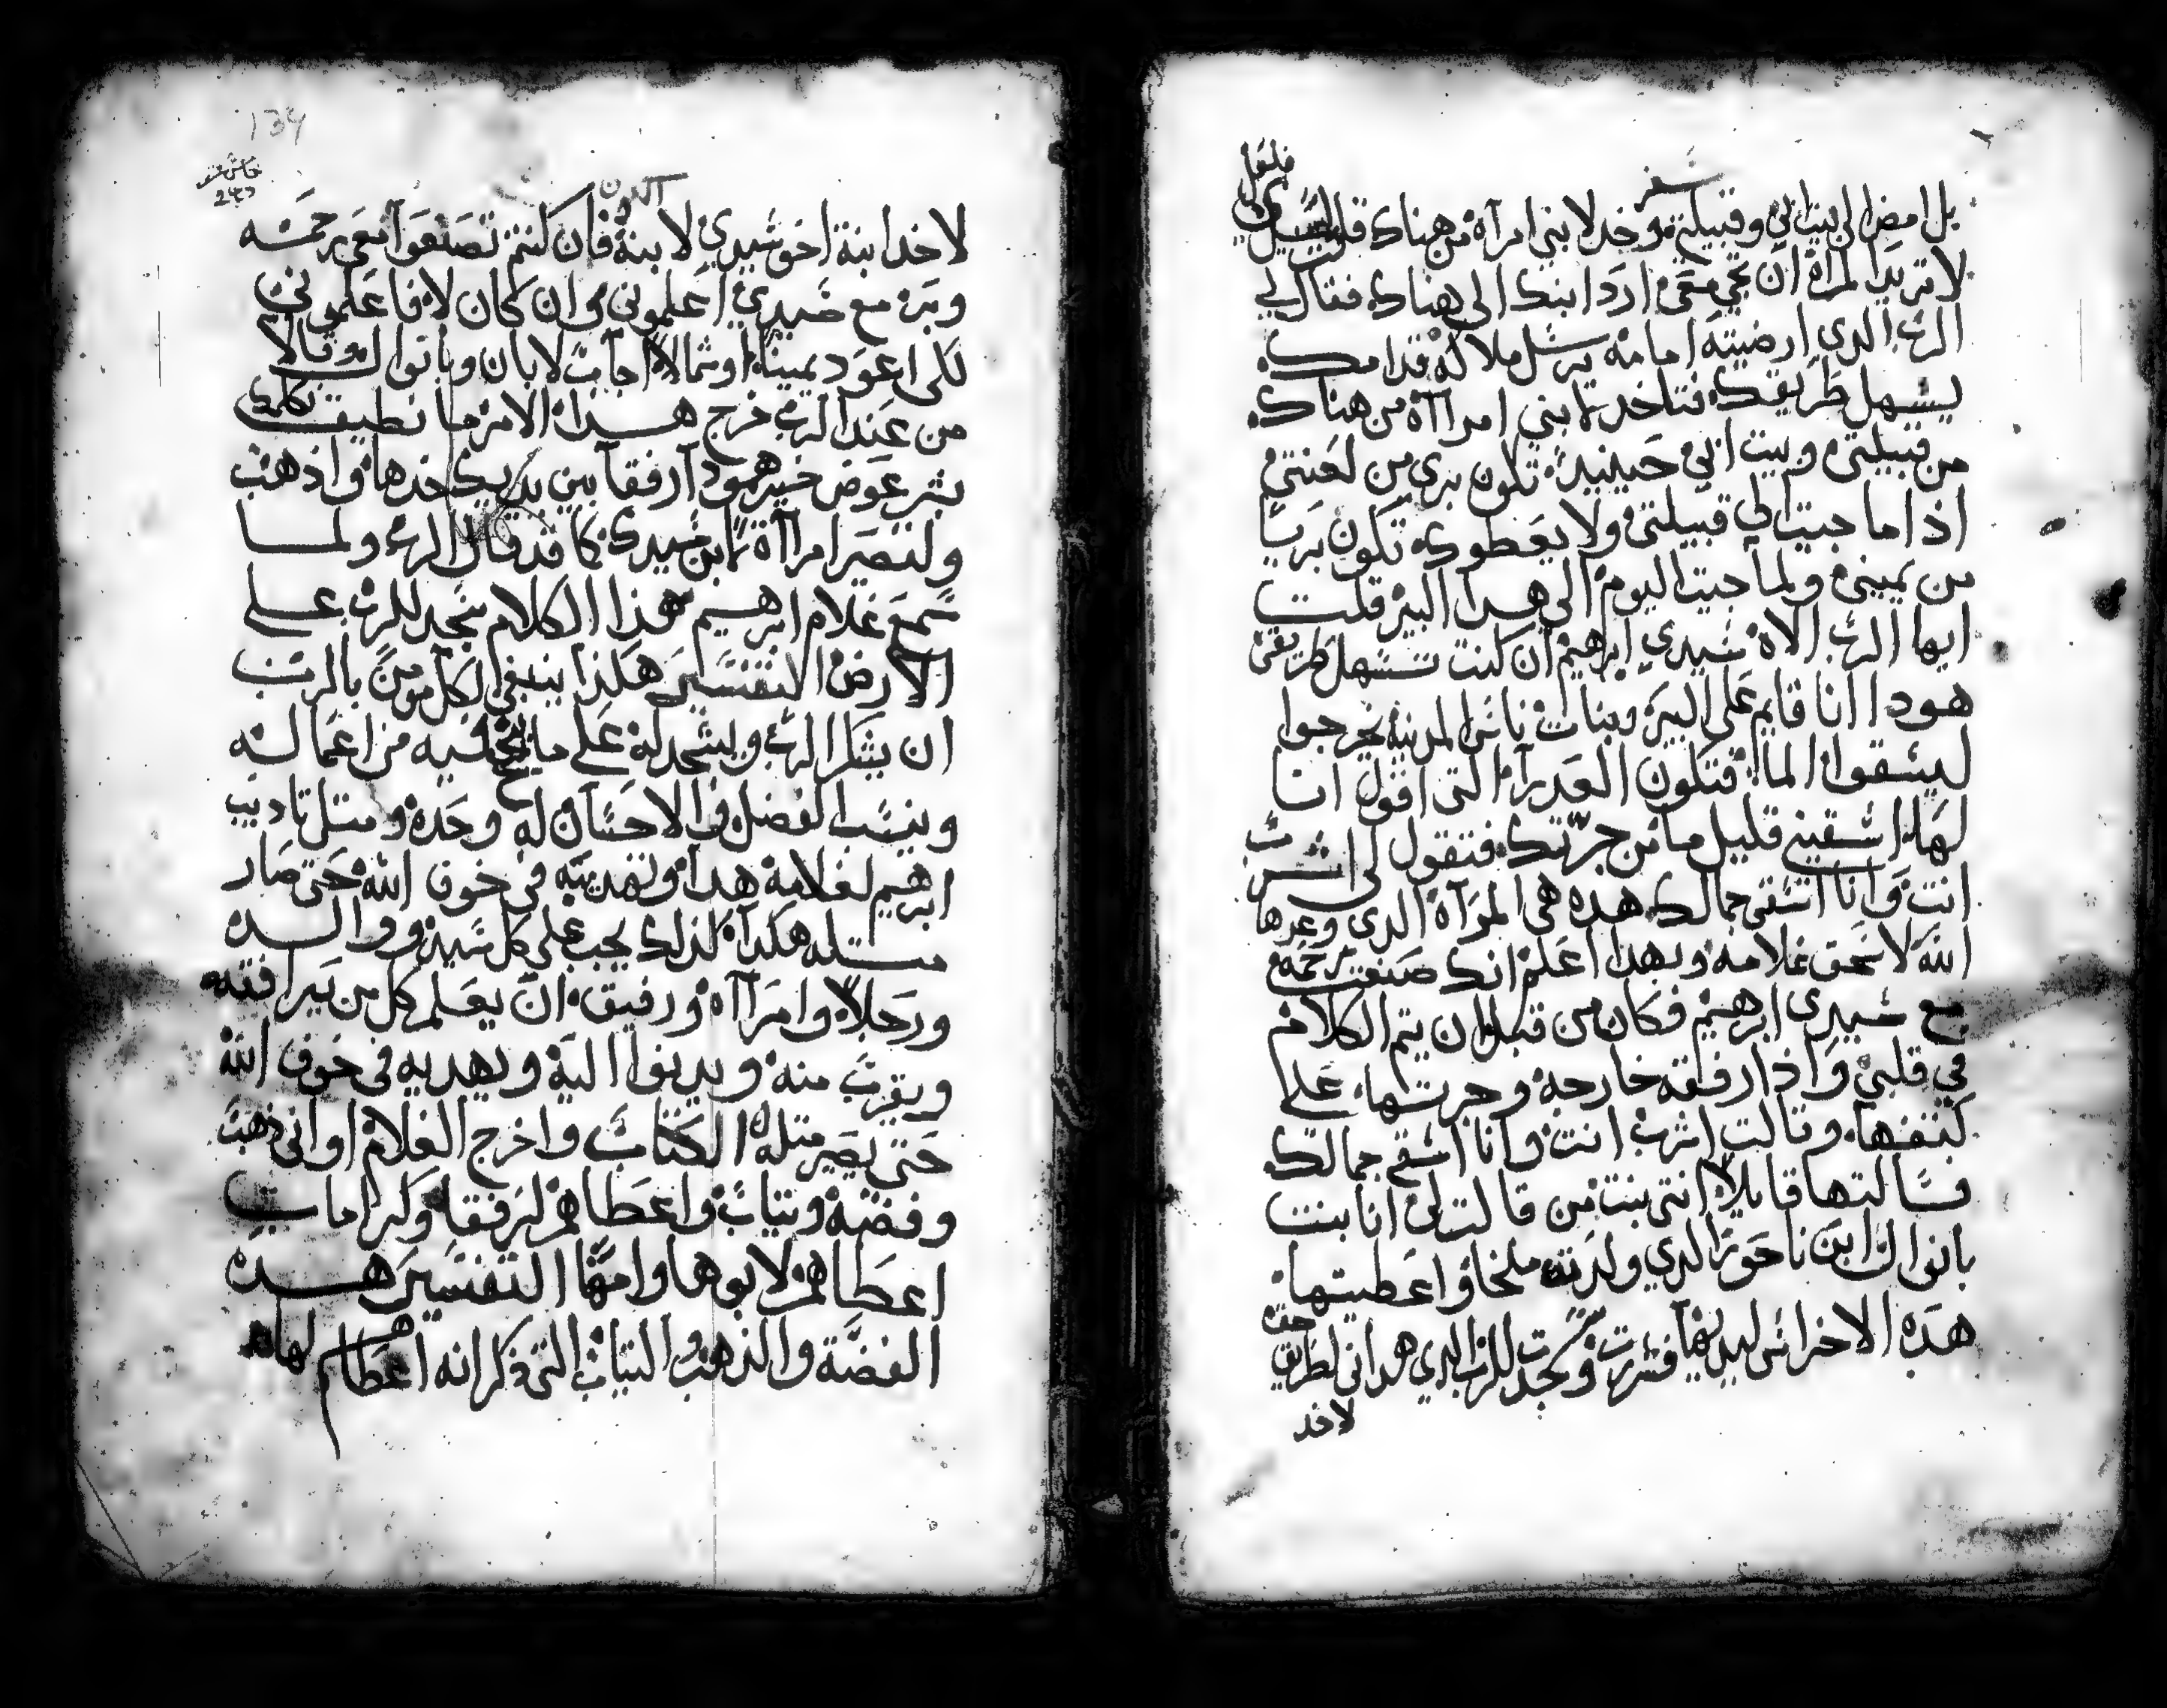 سفر
بل امض الى بيت ابي وقبيلتي وخد لابني امرآة من هناك فقلت لسيدي
لا تريد المراة ان تجي معي ارد ابنك الى هناك فقال لي
الرب الدي ارضيته امامه يرسل ملاكه قدامك
يسهل طريقك فتاخد لابني امراآة من هناك
من قبيلتي وبيت ابي حينيد تكون بري من لعنتي
اذا ما جيت الي قبيلتي ولا يعطوك تكون بريا
من يميني ولما جيت اليوم الي هدا البير قلت
ايها الرب الاه سيدي ابرهيم ان كنت تسهل طريقي
هودا انا قايم على البير وبنات ناس المدينة يخرجوا
ليسقوا الما فتكون العدرآ التى اقول انا
لها اسقيني قليل ما من جرتك فتقول لى اشرب
انت وانا اسقي جمالك هده هي المرآة الدى وعدها
الله لاسحق غلامه وبهدا اعلم انك صنعت رحمه
مع سيدى ابرهيم فكان من قبل ان يتم الكلام
في قلبي واذا رفقه خارجة وجرتها علي
كتفها وقالت اشرب انت وانا اسقي جمالك
فسالتها قايلا انتى بنت من قالت لى انا بنت
باتوال ابن ناحور الدي ولدته ملخا واعطيتها
هده الاخراس ليديها فسررت وسجدت للرب الدي هداني لطريق حق
لاخد
134
التكوين
لاخد ابنة اخو سيدي لابنه فان كنتم تصنعوا معي رحمه
وبره مع سيدي اعلموني وان كان لا فاعلموني
لكى اعود يمينا او شمالا اجاب لابان وباتوال وقالا
من عند الرب خرج هدا الامر ما نطيق نكلمك
بشر عوض خير هودا رفقا بين يديك خدها واذهب
ولتصير امراآة لابن سيدك كما قد قال الرب ولما
سمع غلام ابرهيم هذا الكلام سجد للرب علي
الارض التفسير هكذا ينبغي لكل مومن بالرب
ان يشكر الرب ويسجد له علي ما ينجح فيه من اعماله
وينسب الفضل في الاحسان له وحده ومتل تاديب
ابرهيم لغلامه هدا وتهديبه في خوف الله حتى صار
متله هكدا كذلك يجب على كل سيد ووالده
ورجلا وامراآه ورفيق ان يعلم كل من يرافقه
ويقرب منه ويدنوا اليه ويهديه في خوف الله
حتى يصير متله الكتاب واخرج الغلام اواني ذهب
وفضه وتياب واعطاهم لرفقا وكرامات
اعطاهم لابوها وامها التفسير هده
الفضة والذهب والتياب التي ذكر انه اعطاهم لها